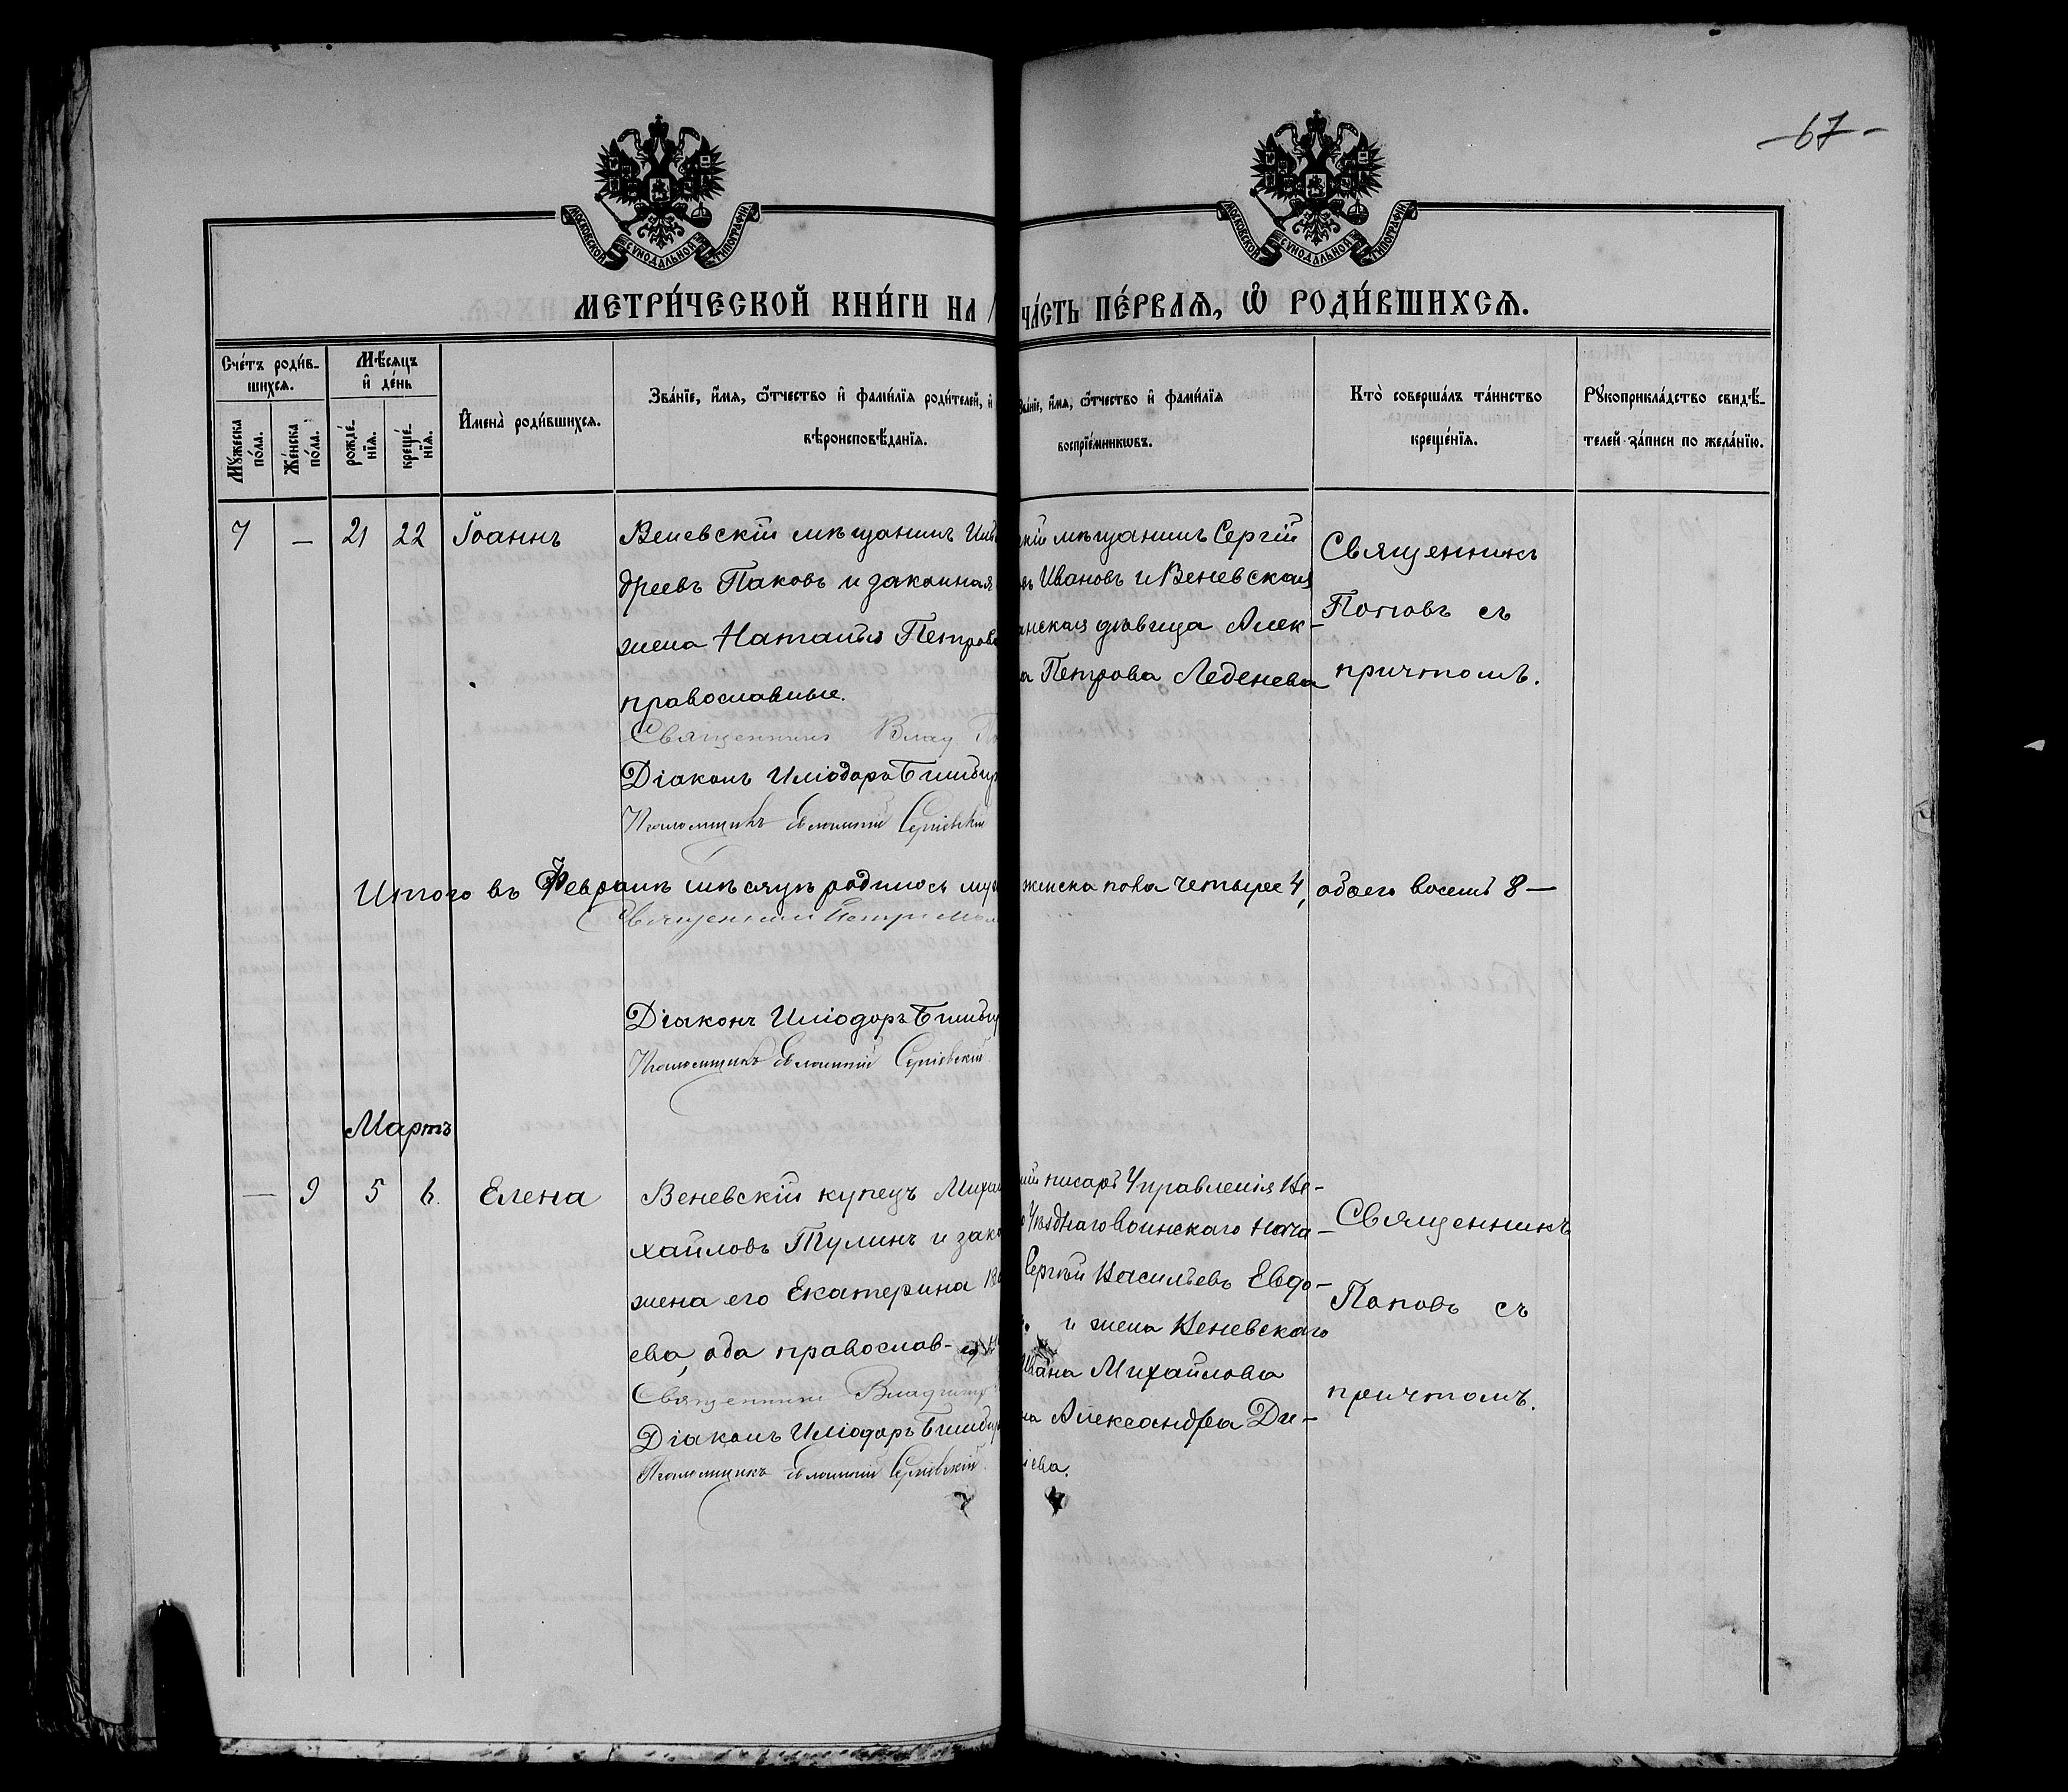 -67-
МОСКОВСКОЙ СУНОДАЛЬНОЙ ТИПОГРАФИИ
МОСКОВСКОЙ СУНОДАЛЬНОЙ ТИПОГРАФИИ
МЕТРИ́ЧЕСКОЙ КНИ́ГИ НА
ЧА́СТЬ ПЕ́РВАѦ, Ѿ РОДИ́ВШИХСѦ.
Сче́тъ роди́в-
шихсѧ.
Мѣ́сѧцъ
и҆ де́нь
Мꙋ́жеска
по́ла.
Же́нска
по́ла.
рожде́-
нїѧ.
креще́-
нїѧ.
И҆мена̀ роди́вшихсѧ.
Зва́нїе, и҆́мѧ, ѻ҆́тчество и҆ фами́лїѧ роди́телей, и҆
вѣроисповѣ́данїѧ.
Зва́нїе, и҆́мѧ, ѻ҆́тчество и҆ фами́лїѧ
воспрїе́мникѡвъ.
Кто̀ соверша́лъ та́инство
креще́нїѧ.
Рꙋкоприкла́дство свидѣ́-
телей за́писи по жела́нїю.
7 — 21 22 Іоаннъ
Веневскій мѣщанинъ
дреевъ Паковъ и законная
жена Наталья Петров
православные.
Священникъ Влад По
Діаконъ Иліодоръ
Псаломщикъ Сергіевскій
кій мѣщанинъ Сергій
въ Ивановъ и Веневская
анская дѣвица Алек-
а Петрова Леденева
Священникъ
Поповъ съ
причтомъ.
Итого въ Февралѣ мѣсяцѣ родилось муж женска пола четыре 4, обоего восемь 8 —
Священникъ Петръ
Діаконъ Иліодоръ
Псаломщикъ Сергіевскій
Мартъ
— 9 5 6. Елена
Веневскій купецъ Михаи
хайловъ Тулинъ и зако
жена его Екатерина
ева, оба православ-
Священникъ Владимір
Діаконъ Иліодоръ
Псаломщикъ Сергіевскій
ій писарь Управленія Ве-
Уѣзднаго Воинскаго Нача-
Сергѣй Васильевъ Евдо-
и жена Веневскаго
Ивана Михайлова
на Александра Ди-
іева.
Священникъ
Поповъ съ
причтомъ.